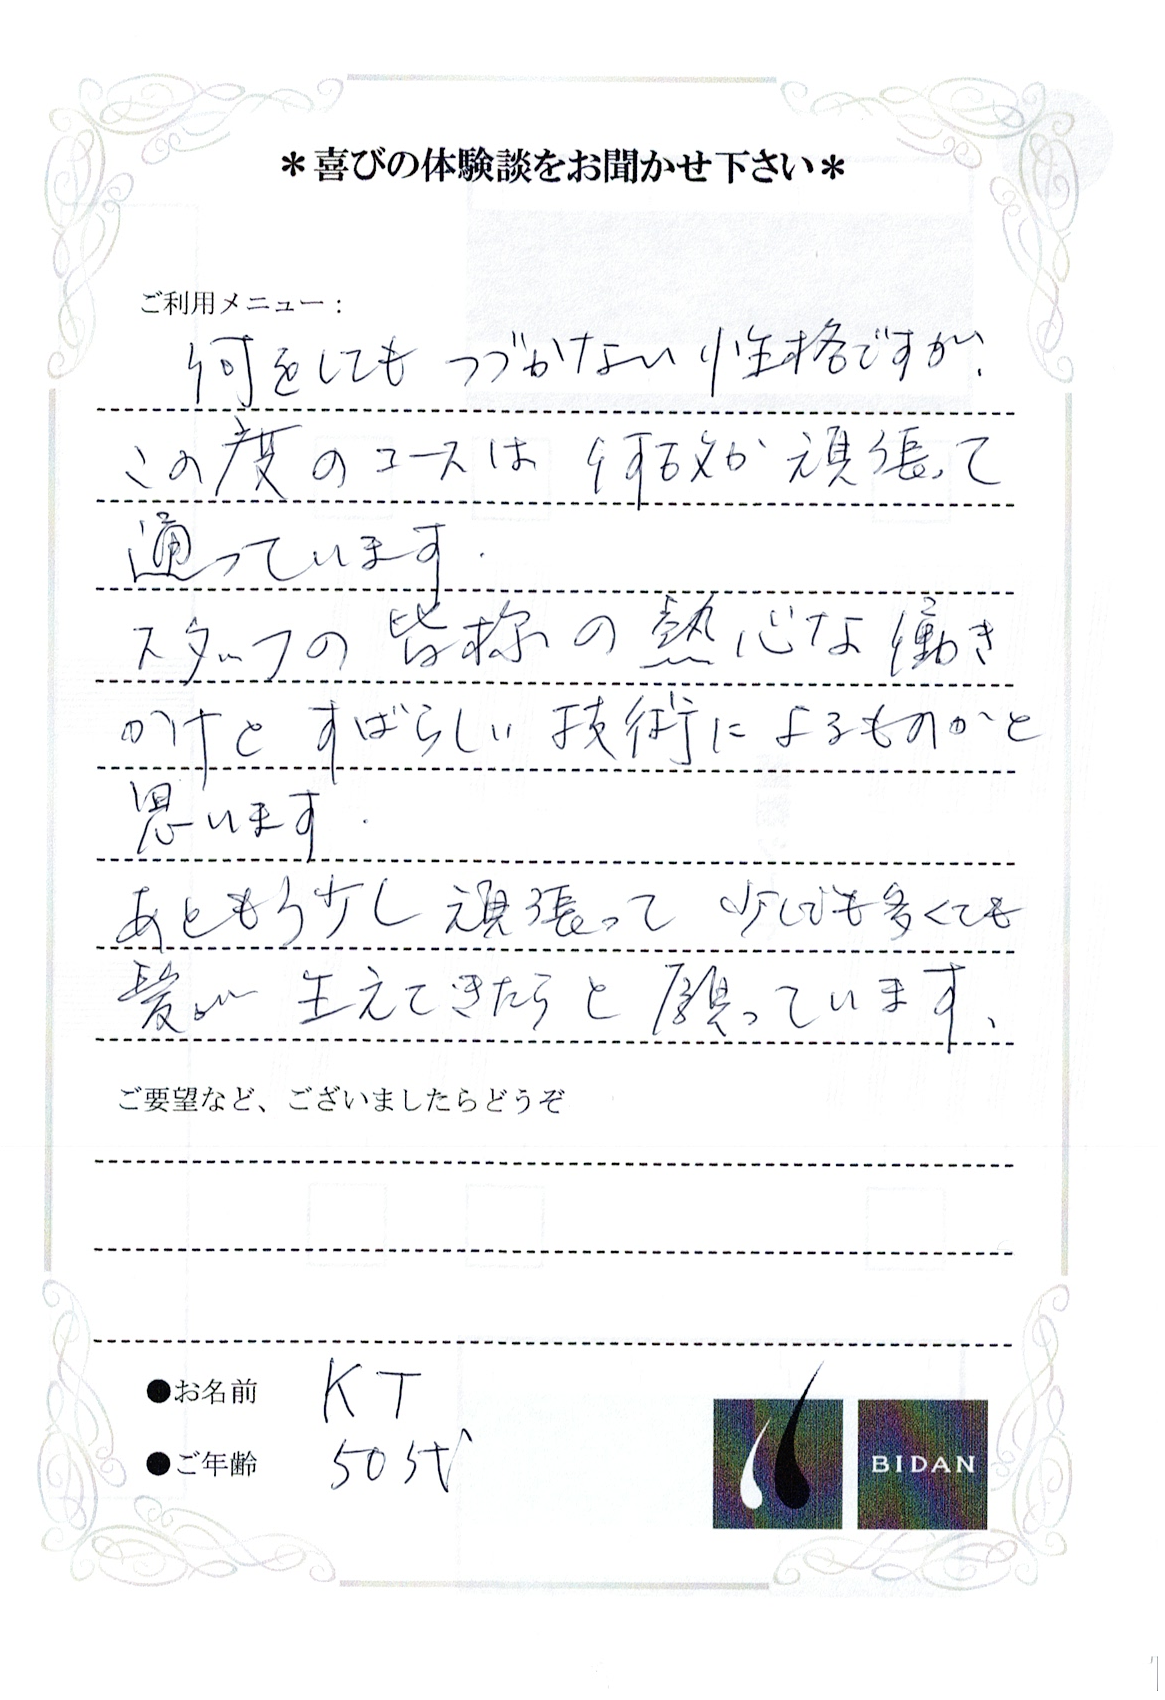 ＊喜びの体験談をお聞かせ下さい＊
ご利用メニュー：
何をしても つづかない 性格ですが、
この度のコースは 何故か 頑張って
通っています.
スタッフの 皆様の 熱心な 働き
かけと すばらしい 技術に よるものかと
思います.
あともう少し 頑張って 少しでも多くても
髪が 生えてきたらと 願っています、
ご要望など、ございましたらどうぞ
●お名前 KT
●ご年齢 50代
BIDAN